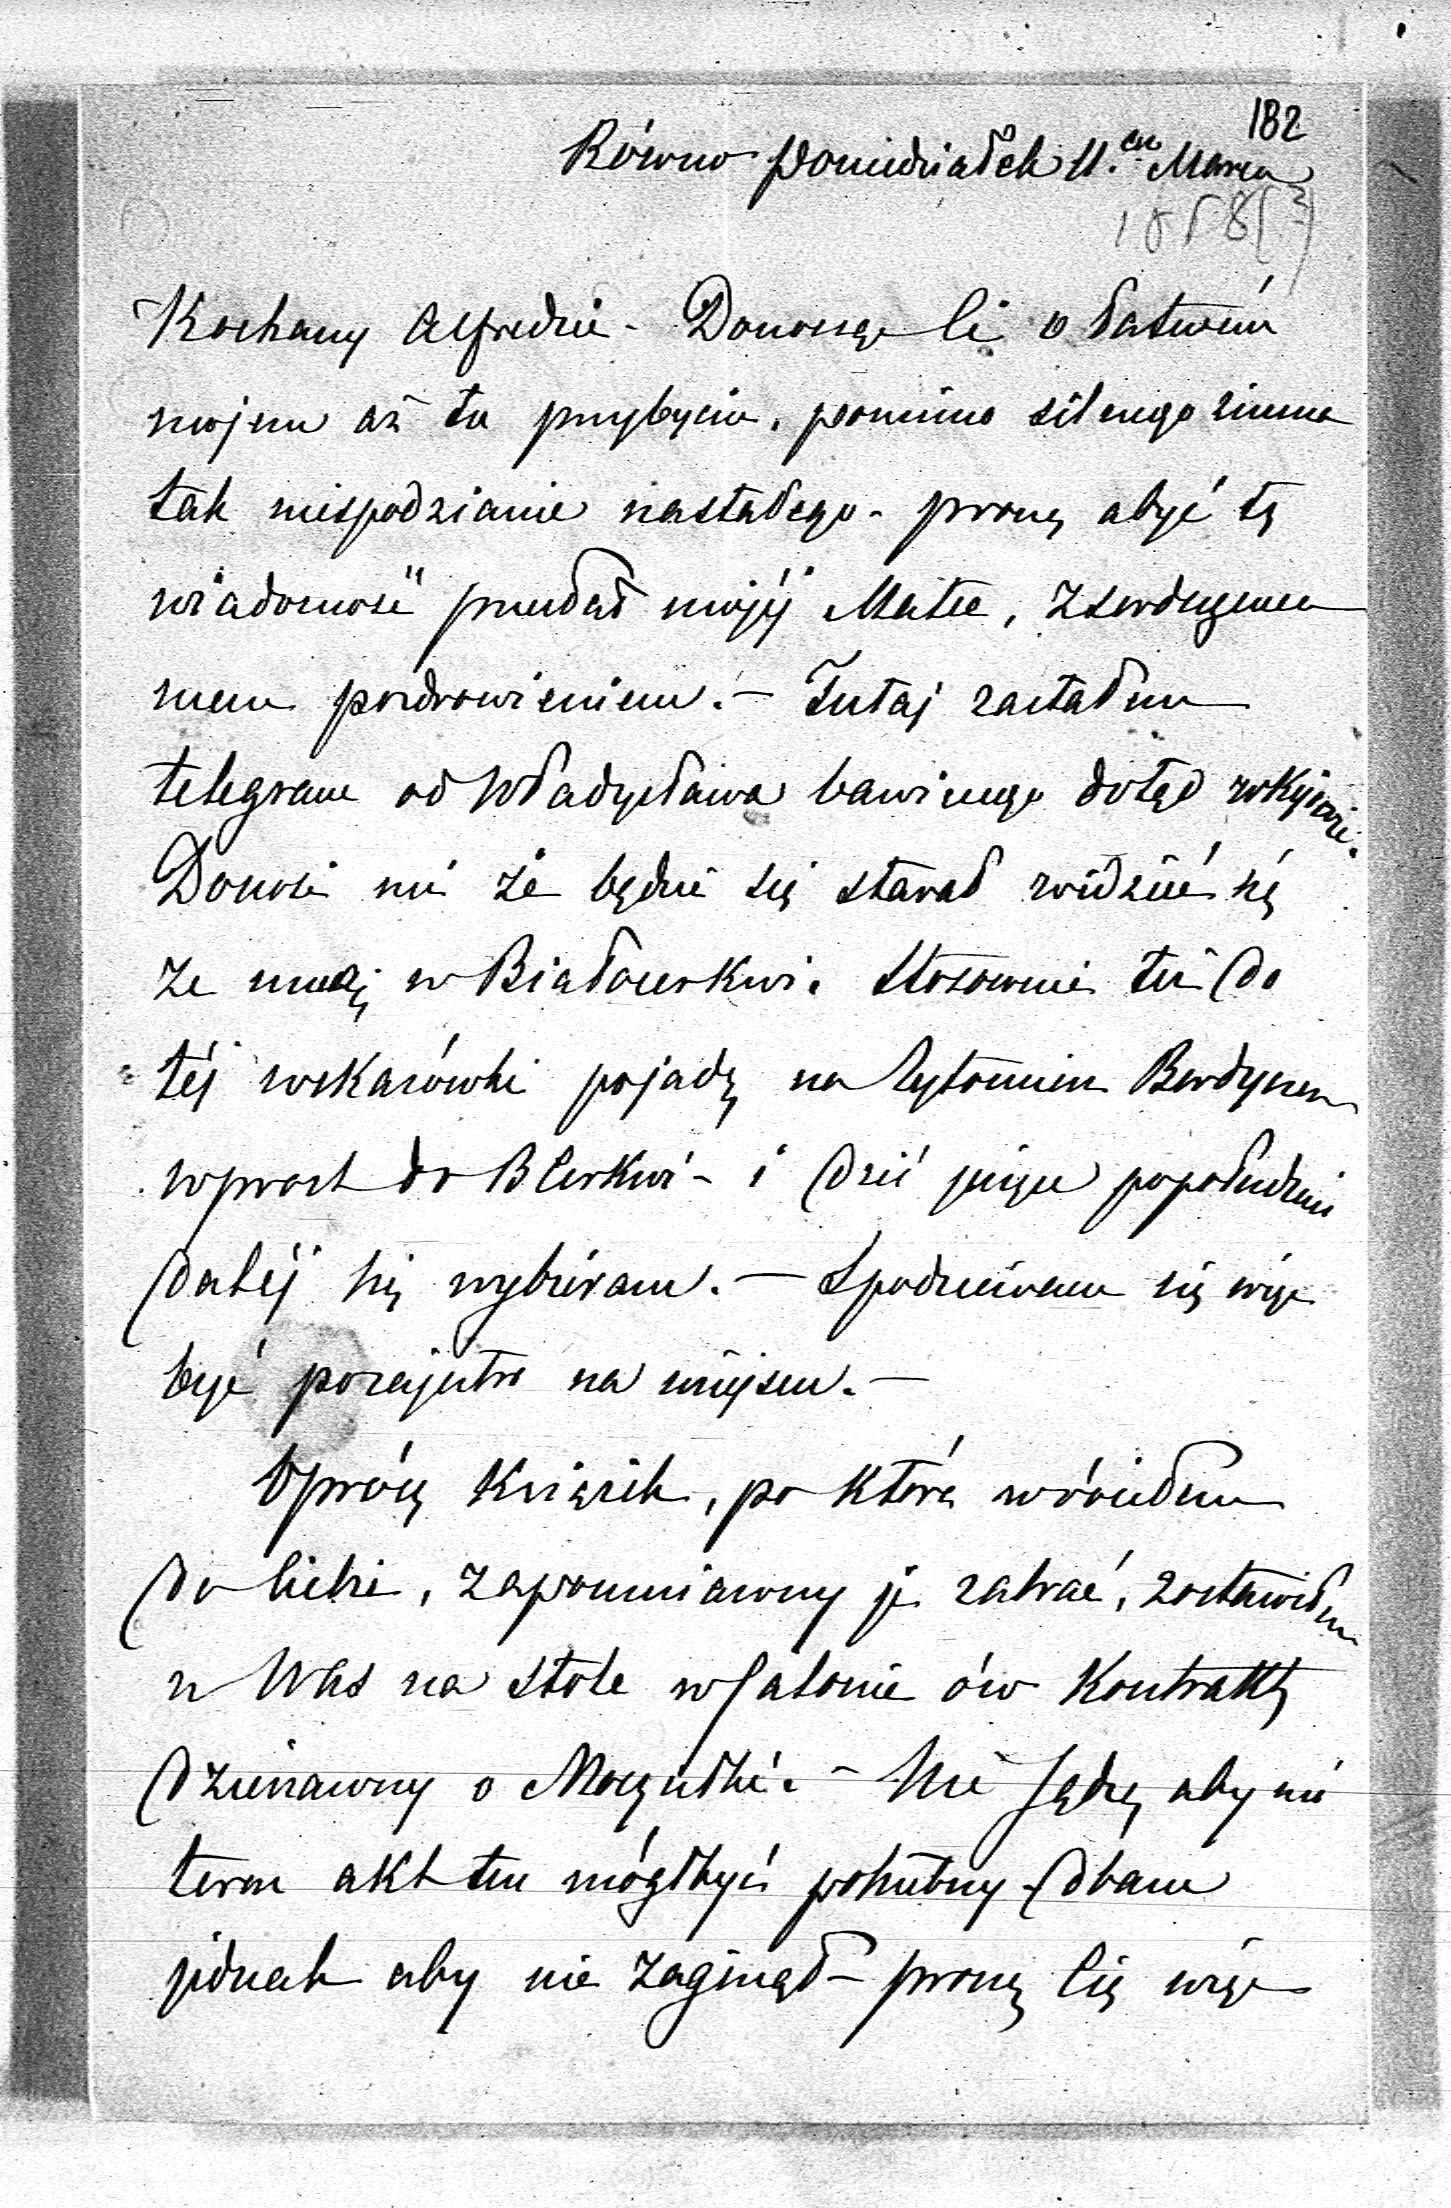 182
Równo Poniedziałek 11.go Marca
1858(?)
Kochany Alfredzie - Donoszę Ci o łatwém
mojem aż tu przybyciu, pomimo silnego zimna
tak niespodzianie nastałego - proszę abyś tę
wiadomość przesłał mojéj Matce, z serdecznem
mem pozdrowieniem. - Tutaj zastałem
telegram od Władysława bawiącego dotąd w Kijowie.
Donosi mi że będzie się starał widzieć się
ze mną w Białocerkwi. Stosownie też do
téj wskazówki pojadę na Żytomierz Berdyczew
wprost do BCerkwi - i dziś jeszcze popołudniu
daléj się wybieram. - Spodziewam się więc
być pozajutro na miejscu. -
Oprócz książek, po które wróciłem
do Ciebie, zapomniawszy je zabrać, zostawiłem
u Was na stole w salonie ów kontrakt
dzierżawny o Moczułki. - Nie sądzę aby mi
teraz akt ten mógł być potrzebny - dbam
jednak aby nie zaginął - proszę Cię więc